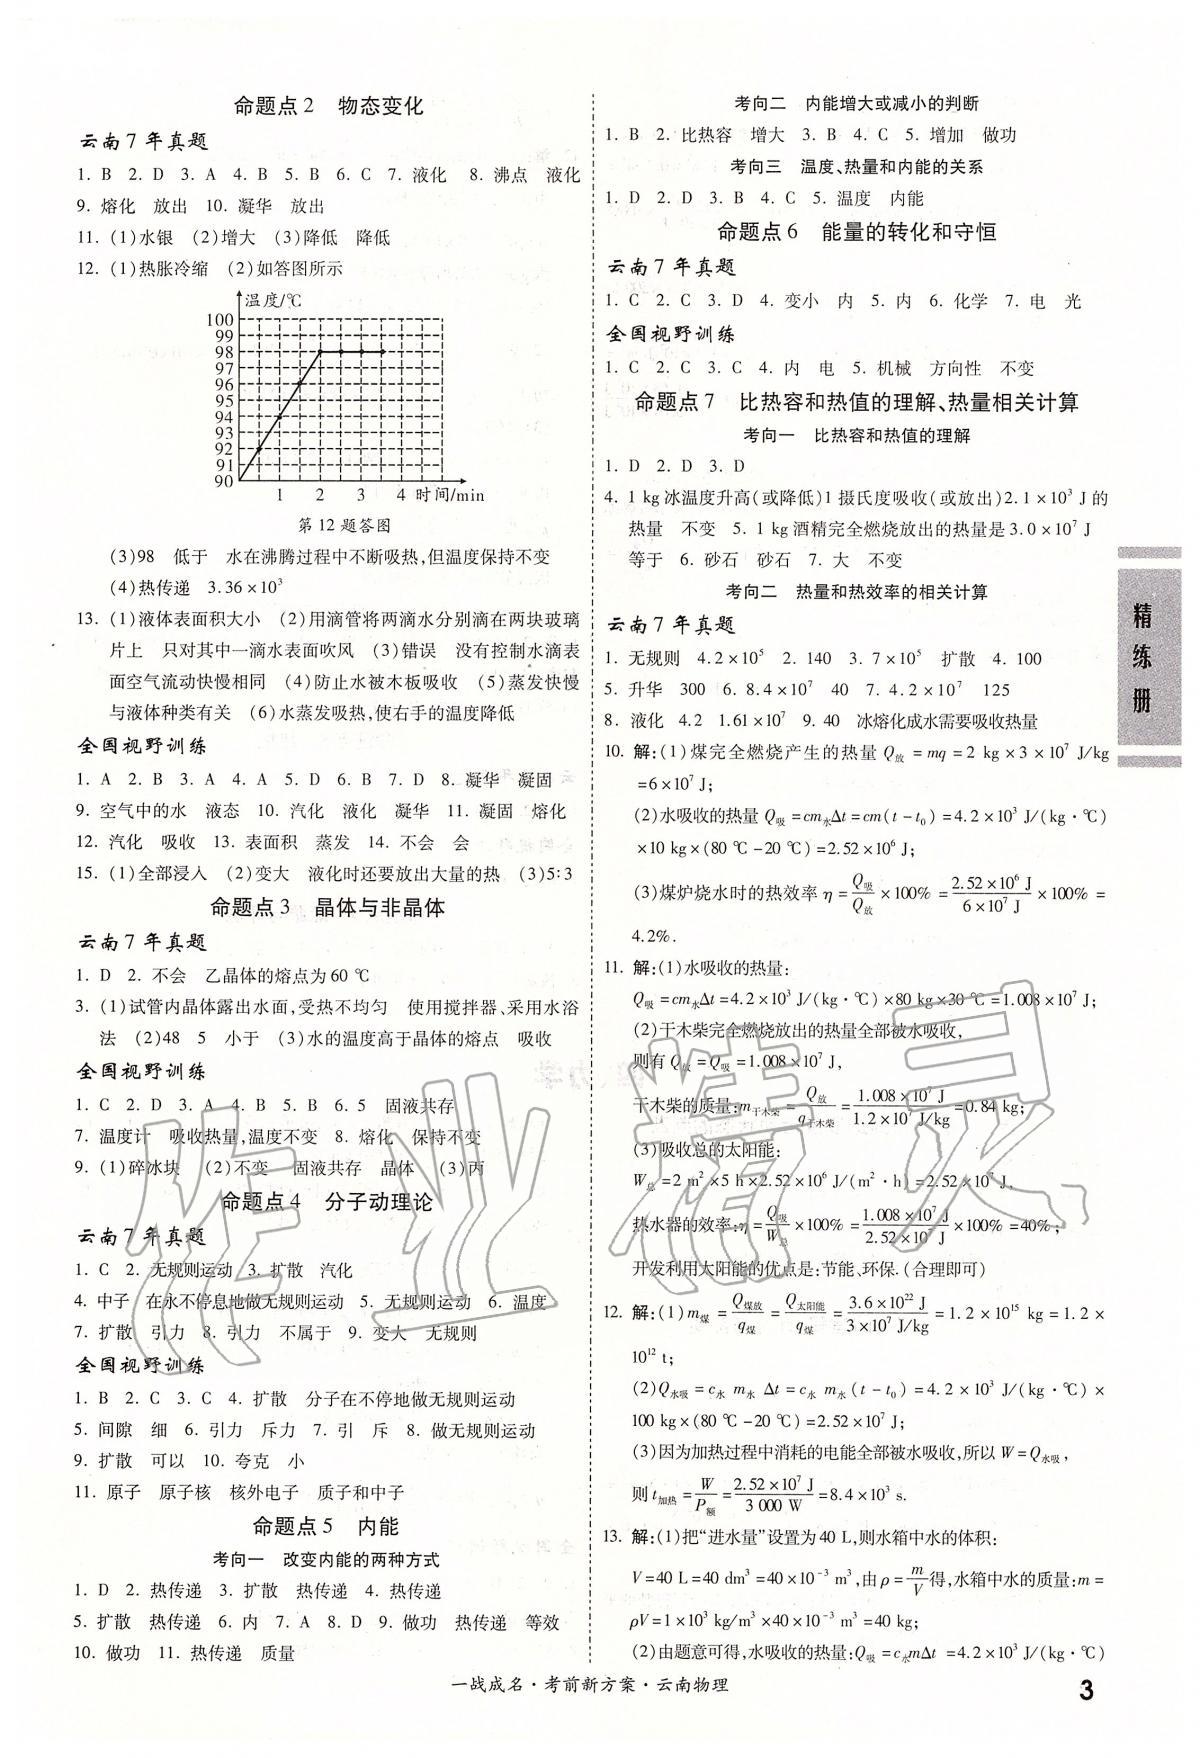 命题点2 物态变化
云南7年真题
1. B 2. D 3. A 4. B 5. B 6. C 7. 液化 8. 沸点 液化
9. 熔化 放出 10. 凝华 放出
11. (1)水银 (2)增大 (3)降低 降低
12. (1)热胀冷缩 (2)如答图所示
温度/℃
100
99
98
97
96
95
94
93
92
91
90
1 2 3 4 时间/min
第12题答图
(3)98 低于 水在沸腾过程中不断吸热,但温度保持不变
(4)热传递 3.36×10³
13. (1)液体表面积大小 (2)用滴管将两滴水分别滴在两块玻璃
片上 只对其中一滴水表面吹风 (3)错误 没有控制水滴表
面空气流动快慢相同 (4)防止水被木板吸收 (5)蒸发快慢
与液体种类有关 (6)水蒸发吸热,使右手的温度降低
全国视野训练
1. A 2. B 3. A 4. A 5. D 6. B 7. D 8. 凝华 凝固
9. 空气中的水 液态 10. 汽化 液化 凝华 11. 凝固 熔化
12. 汽化 吸收 13. 表面积 蒸发 14. 不会 会
15. (1)全部浸入 (2)变大 液化时还要放出大量的热 (3)5:3
命题点3 晶体与非晶体
云南7年真题
1. D 2. 不会 乙晶体的熔点为60 ℃
3. (1)试管内晶体露出水面,受热不均匀 使用搅拌器、采用水浴
法 (2)48 5 小于 (3)水的温度高于晶体的熔点 吸收
全国视野训练
1. C 2. D 3. A 4. B 5. B 6. 5 固液共存
7. 温度计 吸收热量,温度不变 8. 熔化 保持不变
9. (1)碎冰块 (2)不变 固液共存 晶体 (3)丙
命题点4 分子动理论
云南7年真题
1. C 2. 无规则运动 3. 扩散 汽化
4. 中子 在永不停息地做无规则运动 5. 无规则运动 6. 温度
7. 扩散 引力 8. 引力 不属于 9. 变大 无规则
全国视野训练
1. B 2. C 3. C 4. 扩散 分子在不停地做无规则运动
5. 间隙 细 6. 引力 斥力 7. 引 斥 8. 做无规则运动
9. 扩散 可以 10. 夸克 小
11. 原子 原子核 核外电子 质子和中子
命题点5 内能
考向一 改变内能的两种方式
1. D 2. 热传递 3. 扩散 热传递 4. 热传递
5. 扩散 热传递 6. 内 7. A 8. D 9. 做功 热传递 等效
10. 做功 11. 热传递 质量
考向二 内能增大或减小的判断
1. B 2. 比热容 增大 3. B 4. C 5. 增加 做功
考向三 温度、热量和内能的关系
1. D 2. D 3. B 4. C 5. 温度 内能
命题点6 能量的转化和守恒
云南7年真题
1. C 2. C 3. D 4. 变小 内 5. 内 6. 化学 7. 电 光
全国视野训练
1. C 2. C 3. C 4. 内 电 5. 机械 方向性 不变
命题点7 比热容和热值的理解、热量相关计算
考向一 比热容和热值的理解
1. D 2. D 3. D
4. 1 kg冰温度升高(或降低)1摄氏度吸收(或放出)2.1×10³ J的
热量 不变 5. 1 kg酒精完全燃烧放出的热量是3.0×10⁷ J
等于 6. 砂石 砂石 7. 大 不变
考向二 热量和热效率的相关计算
云南7年真题
1. 无规则 4.2×10⁵ 2. 140 3. 7×10⁵ 扩散 4. 100
5. 升华 300 6. 8.4×10⁷ 40 7. 4.2×10⁷ 125
8. 液化 4.2 1.61×10⁷ 9. 40 冰熔化成水需要吸收热量
10. 解:(1)煤完全燃烧产生的热量 Q放=mq=2 kg×3×10⁷ J/kg
=6×10⁷ J;
(2)水吸收的热量 Q吸=cm水Δt=cm(t-t₀)=4.2×10³ J/(kg·℃)
×10 kg×(80 ℃-20 ℃)=2.52×10⁶ J;
(3)煤炉烧水时的热效率 η=Q吸/Q放×100%=2.52×10⁶ J/6×10⁷ J×100%=
4.2%.
11. 解:(1)水吸收的热量:
Q吸=cm水Δt=4.2×10³ J/(kg·℃)×80 kg×30 ℃=1.008×10⁷ J;
(2)干木柴完全燃烧放出的热量全部被水吸收,
则有 Q放=Q吸=1.008×10⁷ J,
干木柴的质量:m干木柴=Q放/q干木柴=1.008×10⁷ J/1.2×10⁷ J/kg=0.84 kg;
(3)吸收总的太阳能:
W总=2 m²×5 h×2.52×10⁶ J/(m²·h)=2.52×10⁷ J,
热水器的效率:η=Q吸/W总×100%=1.008×10⁷ J/2.52×10⁷ J×100%=40%;
开发利用太阳能的优点是:节能、环保.(合理即可)
12. 解:(1)m煤=Q煤放/q煤=Q太阳能/q煤=3.6×10²² J/3×10⁷ J/kg=1.2×10¹⁵ kg=1.2×
10¹² t;
(2)Q水吸=c水 m水 Δt=c水 m水(t-t₀)=4.2×10³ J/(kg·℃)×
100 kg×(80 ℃-20 ℃)=2.52×10⁷ J;
(3)因为加热过程中消耗的电能全部被水吸收,所以 W=Q水吸,
则 t加热=W/P额=2.52×10⁷ J/3 000 W=8.4×10³ s.
13. 解:(1)把“进水量”设置为40 L,则水箱中水的体积:
V=40 L=40 dm³=40×10⁻³ m³,由ρ=m/V得,水箱中水的质量:m=
ρV=1×10³ kg/m³×40×10⁻³ m³=40 kg;
(2)由题意可得,水吸收的热量:Q吸=c水mΔt=4.2×10³ J/(kg·℃)
精练册
一战成名·考前新方案·云南物理
3
作业精灵